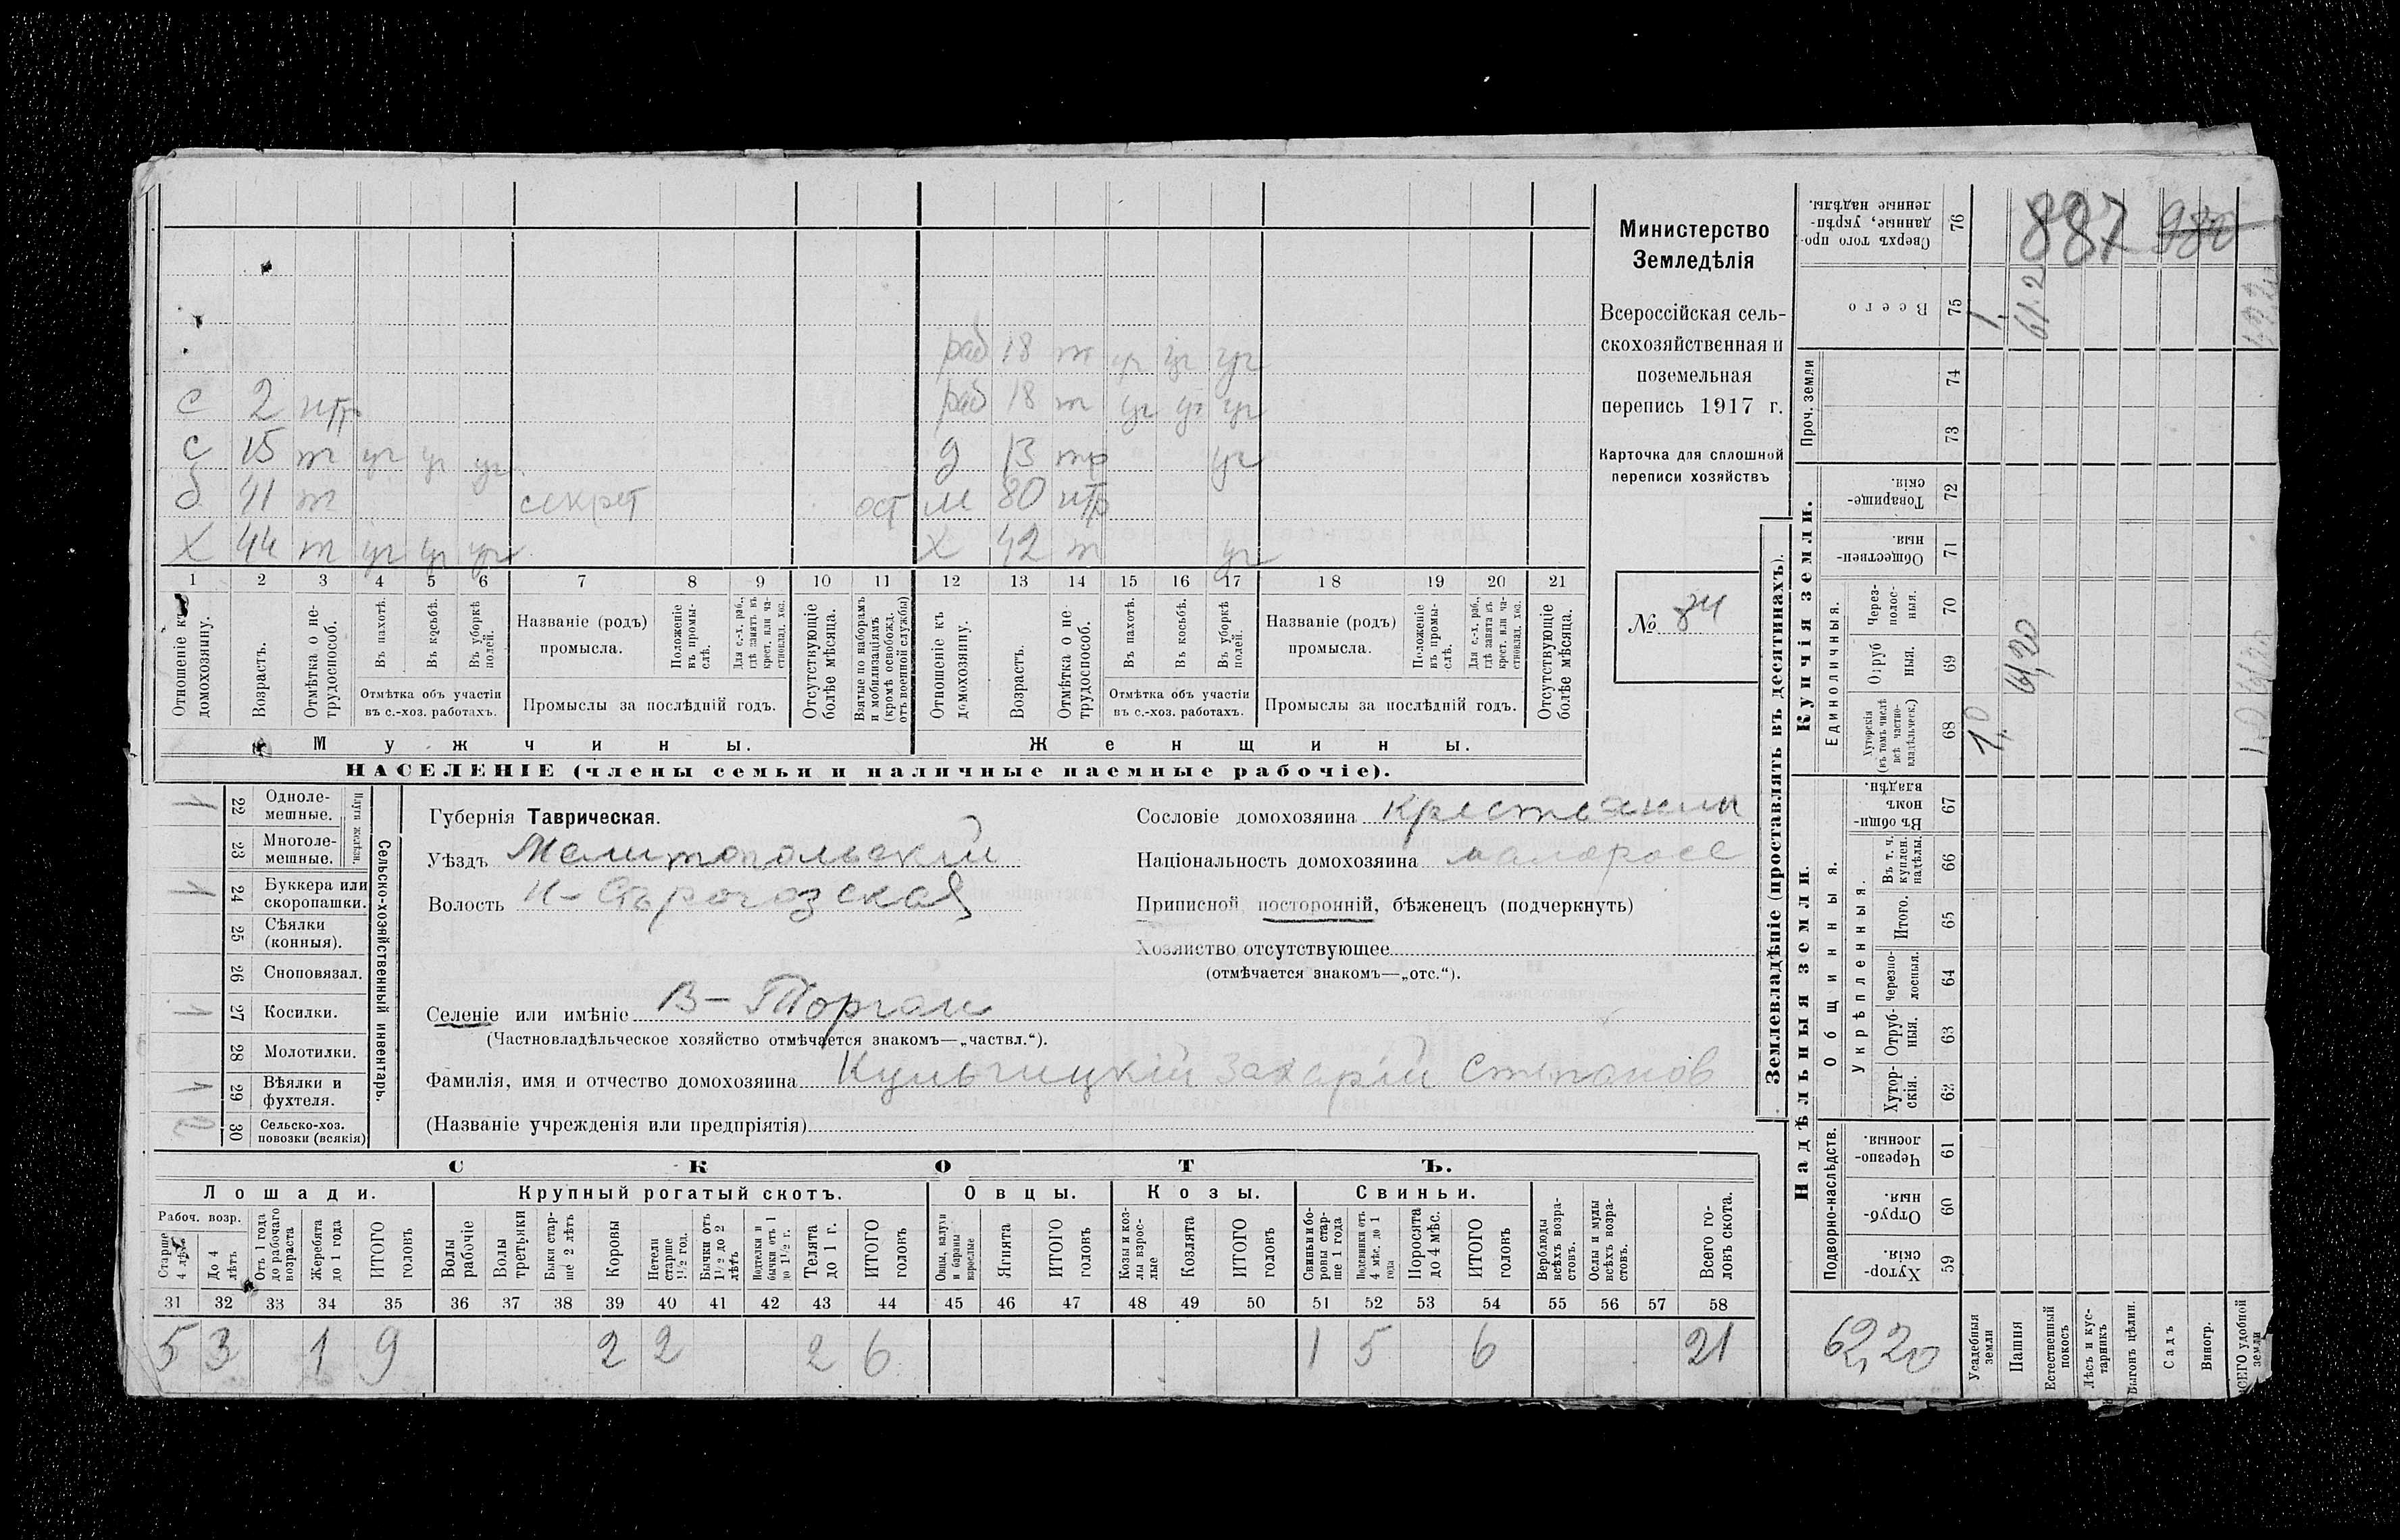 Министерство
Земледѣлія
Всероссійская сель-
скохозяйственная и
поземельная
перепись 1917 г.
Карточка для сплошной
переписи хозяйствъ
№ 84
раб 18 т уч уч уч
с 2 нтр раб 18 т уч уч уч
с 15 т уч уч уч д 13 тр уч
б 41 т секрет ост м 80 нтр
х 44 т уч уч уч х 42 т уч
1 2 3 4 5 6 7 8 9 10 11 12 13 14 15 16 17 18 19 20 21
Отношеніе къ домохозяину.
Возрастъ.
Отмѣтка о не-трудоспособ.
Въ пахотѣ.
Въ косьбѣ.
Въ уборкѣ полей.
Отмѣтка объ участіи
въ с.-хоз. работахъ.
Названіе (родъ)
промысла.
Положеніе въ промы-слѣ.
Для с.-х. раб., гдѣ занятъ въ крест. или ча-стновлад. хоз.
Промыслы за послѣдній годъ.
Отсутствующіе болѣе мѣсяца.
Взятые по наборамъ и мобилизаціямъ (кромѣ освобожд. отъ военной службы)
Отношеніе къ домохозяину.
Возрастъ.
Отмѣтка о не-трудоспособ.
Въ пахотѣ.
Въ косьбѣ.
Въ уборкѣ полей.
Отмѣтка объ участіи
въ с.-хоз. работахъ.
Названіе (родъ)
промысла.
Положеніе въ промы-слѣ.
Для с.-х. раб., гдѣ занята въ крест. или ча-стновлад. хоз.
Промыслы за послѣдній годъ.
Отсутствующіе болѣе мѣсяца.
Мужчины. Женщины.
НАСЕЛЕНІЕ (члены семьи и наличные наемные рабочіе).
22 Одноле-мешные.
23 Многоле-мешные.
Плуги желѣзн.
1 24 Буккера или скоропашки.
25 Сѣялки (конныя).
26 Сноповязал.
1 27 Косилки.
28 Молотилки.
1 29 Вѣялки и фухтеля.
2 30 Сельско-хоз. повозки (всякія)
Сельско-хозяйственный инвентарь.
Губернія Таврическая.
Уѣздъ Мелитопольскій
Волость Н-Сѣрогозская
Сословіе домохозяина крестьянин
Національность домохозяина малоросс
Приписной посторонній, бѣженецъ (подчеркнуть)
Хозяйство отсутствующее
(отмѣчается знакомъ—„отс.“).
Селеніе или имѣніе В-Торгаи
(Частновладѣльческое хозяйство отмѣчается знакомъ—„частвл.“).
Фамилія, имя и отчество домохозяина Кульчицкій Захарій Степанов
(Названіе учрежденія или предпріятія)
СКОТЪ.
Лошади. Крупный рогатый скотъ. Овцы. Козы. Свиньи.
Рабоч. возр.
Старше 4 лѣтъ
До 4 лѣтъ
Отъ 1 года до рабочаго возраста
Жеребята до 1 года
ИТОГО головъ
Волы рабочіе
Волы третьяки
Быки стар-ше 2 лѣтъ
Коровы
Нетели старше 1½ год.
Бычки отъ 1½ до 2 лѣтъ
Подтелки и бычки отъ 1 до 1½ г.
Телята до 1 г.
ИТОГО головъ
Овцы, валухи и бараны взрослые
Ягнята
ИТОГО головъ
Козы и коз-лы взрос-лые
Козлята
ИТОГО головъ
Свиньи и бо-ровы стар-ше 1 года
Подсвинки отъ 4 мѣс. до 1 года
Поросята до 4 мѣс.
ИТОГО головъ
Верблюды всѣхъ возра-стовъ.
Ослы и мулы всѣхъ возра-стовъ.
Всего го-ловъ скота.
31 32 33 34 35 36 37 38 39 40 41 42 43 44 45 46 47 48 49 50 51 52 53 54 55 56 57 58
5 3 1 9 2 2 2 6 1 5 6 21
Землевладѣніе (проставлять въ десятинахъ).
887 980
Сверхъ того про-данные, укрѣп-ленные надѣлы. 76
Всего 75 1, 61.2
Проч. земли 74 73
Купчія земли.
Товарище-скія. 72
Обществен-ныя. 71
Единоличныя.
Через-полос-ныя. 70
Отруб ныя. 69 61,20
Хуторскія (въ томъ числѣ всѣ частно-владѣльческ.) 68 1,0
Надѣльныя земли.
Общинныя.
Въ общи-номъ владѣн. 67
Укрѣпленныя.
Въ т. ч. куплен. надѣлы. 66
Итого. 65
Черезпо-лосныя. 64
Отруб-ныя. 63
Хутор-скія. 62
Подворно-наслѣдств.
Черезпо-лосныя. 61
Отруб-ныя. 60
Хутор-скія. 59
62,20
Усадебныя земли
Пашня
Естественный покосъ
Лѣсъ и кус-тарникъ
Выгонъ цѣлин.
Садъ
Виногр.
ВСЕГО удобной земли